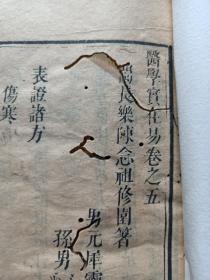 醫學實在易卷之五
長樂陳念祖修園著
男元犀靈
孫男
表證諸方
傷寒